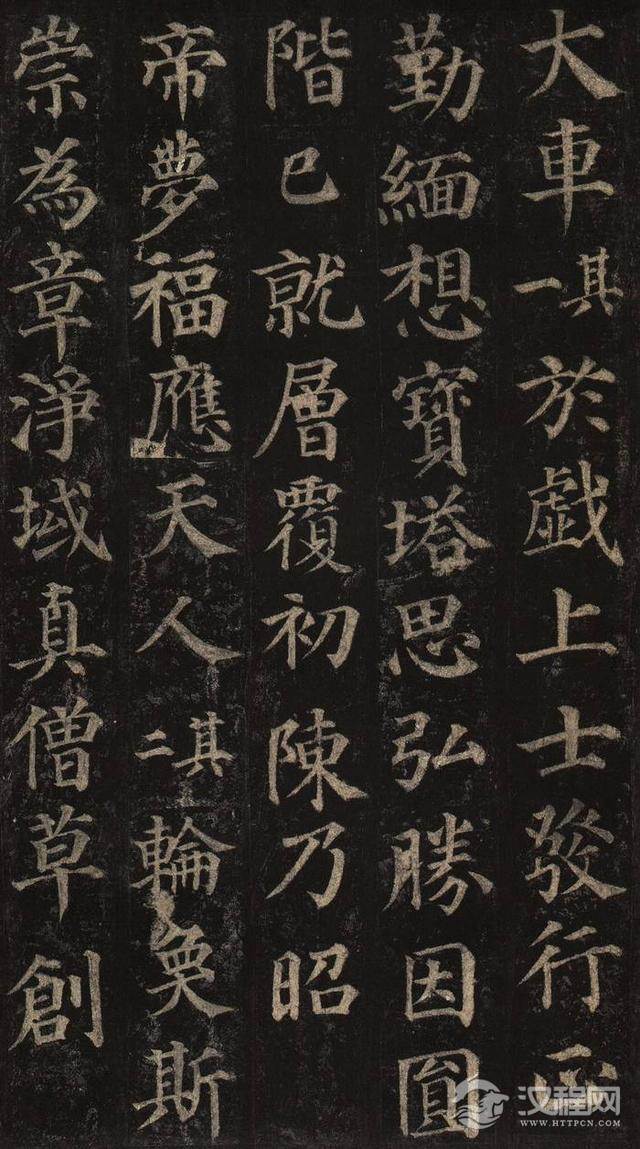 大車其一於戯上士發行正
勤緬想寶塔思弘勝因圎
階已就層覆初陳乃昭
帝夢福應天人其二輪奐斯
崇為章淨域真僧草創
汉程网
WWW.HTTPCN.COM